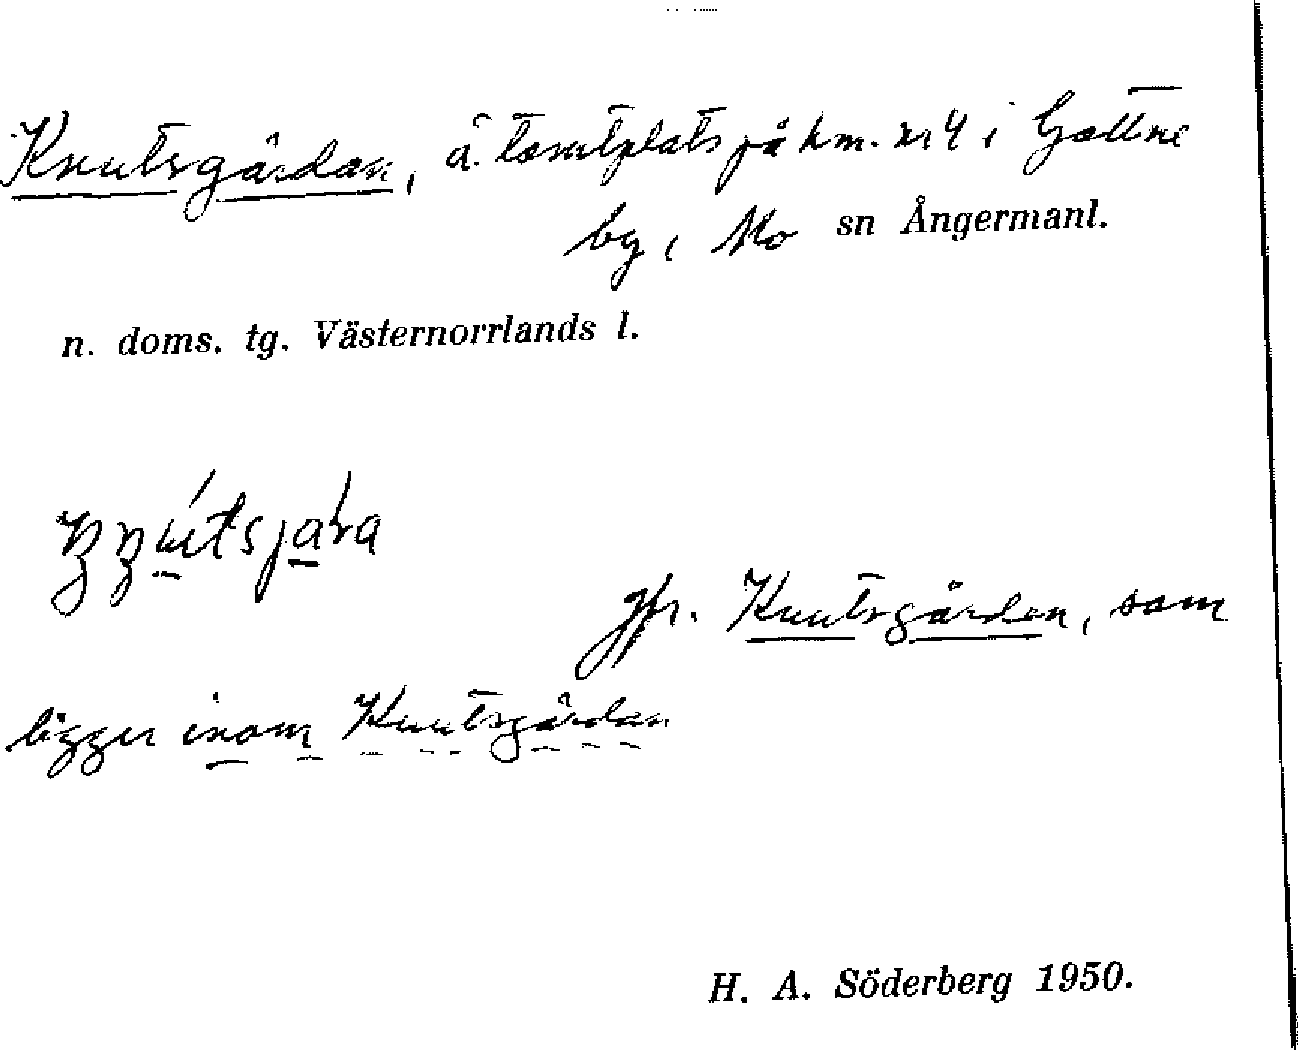 Knutsgårdan, å. tomtplats på hm. nr 4 i Gottne
by, Mo sn Ångermanl.
n. doms. tg. Västernorrlands l.
Jfr. Knutsgården, som
ligger inom Knutsgårdan
H. A. Söderberg 1950.